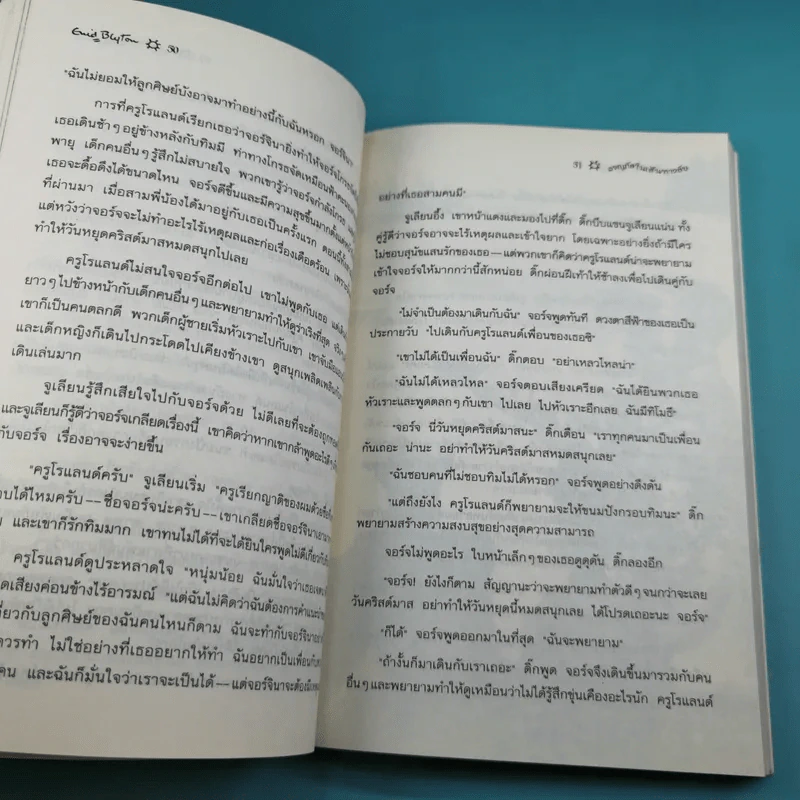 Enid Blyton ☼ 50
"ฉันไม่ยอมให้ลูกศิษย์บังอาจมาทำอย่างนี้กับฉันหรอก จอร์จินา"
การที่ครูโรแลนด์เรียกเธอว่าจอร์จินายิ่งทำให้จอร์จโกรธ
เธอเดินช้าๆ อยู่ข้างหลังกับทิมมี ท่าทางโกรธจัดเหมือนฟ้าคะนอง
พายุ เด็กคนอื่นๆ รู้สึกไม่สบายใจ พวกเขารู้ว่าจอร์จกำลังโกรธ
เธอจะดื้อดึงได้ขนาดไหน จอร์จดีขึ้นและมีความสุขขึ้นมากตั้งแต่
ที่ผ่านมา เมื่อสามพี่น้องได้มาอยู่กับเธอเป็นครั้งแรก ตอนนี้
แต่หวังว่าจอร์จจะไม่ทำอะไรไร้เหตุผลและก่อเรื่องเดือดร้อน เพราะ
ทำให้วันหยุดคริสต์มาสหมดสนุกไปเลย
ครูโรแลนด์ไม่สนใจจอร์จอีกต่อไป เขาไม่พูดกับเธอ แต่
ยาวๆ ไปข้างหน้ากับเด็กคนอื่นๆ และพยายามทำให้ดูร่าเริงที่สุด จริงๆ
เขาก็เป็นคนตลกดี พวกเด็กผู้ชายเริ่มหัวเราะไปกับเขา เขาจับมือ
และเด็กหญิงก็เดินไปกระโดดไปเคียงข้างเขา ดูสนุกเพลิดเพลิน
เดินเล่นมาก
จูเลียนรู้สึกเสียใจไปกับจอร์จด้วย ไม่ดีเลยที่จะต้องถูก
และจูเลียนก็รู้ดีว่าจอร์จเกลียดเรื่องนี้ เขาคิดว่าหากเขากล้าพูดอะไรดีๆ
กับจอร์จ เรื่องอาจจะง่ายขึ้น
"ครูโรแลนด์ครับ" จูเลียนเริ่ม "ครูเรียกญาติของผมด้วยชื่อที่
อบได้ไหมครับ--ชื่อจอร์จน่ะครับ--เขาเกลียดชื่อจอร์จินา
และเขาก็รักทิมมาก เขาทนไม่ได้ที่จะได้ยินใครพูดไม่ดีเกี่ยวกับ
ครูโรแลนด์ดูประหลาดใจ "หนุ่มน้อย ฉันมั่นใจว่าเธอ
ดเสียงค่อนข้างไร้อารมณ์ "แต่ฉันไม่คิดว่าฉันต้องการคำแนะนำ
กี่ยวกับลูกศิษย์ของฉันคนไหนก็ตาม ฉันจะทำกับจอร์จินาอย่าง
ควรทำ ไม่ใช่อย่างที่เธออยากให้ทำ ฉันอยากเป็นเพื่อนกับ
คน และฉันก็มั่นใจว่าเราจะเป็นได้--แต่จอร์จินาจะต้อง
51 ☼
อย่างที่เธอสามคนมี"
จูเลียนอึ้ง เขาหน้าแดงและมองไปที่ดิ๊ก ดิ๊กบีบแขนจูเลียนแน่น ทั้ง
คู่รู้ดีว่าจอร์จอาจจะไร้เหตุผลและเข้าใจยาก โดยเฉพาะอย่างยิ่งถ้ามีใคร
ไม่ชอบสุนัขแสนรักของเธอ--แต่พวกเขาก็คิดว่าครูโรแลนด์น่าจะพยายาม
เข้าใจจอร์จให้มากกว่านี้สักหน่อย ดิ๊กผ่อนฝีเท้าให้ช้าลงเพื่อไปเดินคู่กับ
จอร์จ
"ไม่จำเป็นต้องมาเดินกับฉัน" จอร์จพูดทันที ดวงตาสีฟ้าของเธอเป็น
ประกายวับ "ไปเดินกับครูโรแลนด์เพื่อนของเธอซิ"
"เขาไม่ได้เป็นเพื่อนฉัน" ดิ๊กตอบ "อย่าเหลวไหลน่า"
"ฉันไม่ได้เหลวไหล" จอร์จตอบเสียงเครียด "ฉันได้ยินพวกเธอ
หัวเราะและพูดตลกๆ กับเขา ไปเลย ไปหัวเราะอีกเลย ฉันมีทิโมธี"
"จอร์จ นี่วันหยุดคริสต์มาสนะ" ดิ๊กเตือน "เราทุกคนมาเป็นเพื่อน
กันเถอะ น่านะ อย่าทำให้วันคริสต์มาสหมดสนุกเลย"
"ฉันชอบคนที่ไม่ชอบทิมไม่ได้หรอก" จอร์จพูดอย่างดึงดัน
"แต่ถึงยังไง ครูโรแลนด์ก็พยายามจะให้ขนมปังกรอบทิมนะ" ดิ๊ก
พยายามสร้างความสงบสุขอย่างสุดความสามารถ
จอร์จไม่พูดอะไร ใบหน้าเล็กๆ ของเธอดูดุดัน ดิ๊กลองอีก
"จอร์จ! ยังไงก็ตาม สัญญานะว่าจะพยายามทำตัวดีๆ จนกว่าจะเลย
วันคริสต์มาส อย่าทำให้วันหยุดนี้หมดสนุกเลย ได้โปรดเถอะนะ จอร์จ"
"ก็ได้" จอร์จพูดออกมาในที่สุด "ฉันจะพยายาม"
"ถ้างั้นก็มาเดินกับเราเถอะ" ดิ๊กพูด จอร์จจึงเดินขึ้นมารวมกับคน
อื่นๆ และพยายามทำให้ดูเหมือนว่าไม่ได้รู้สึกขุ่นเคืองอะไรนัก ครูโรแลนด์